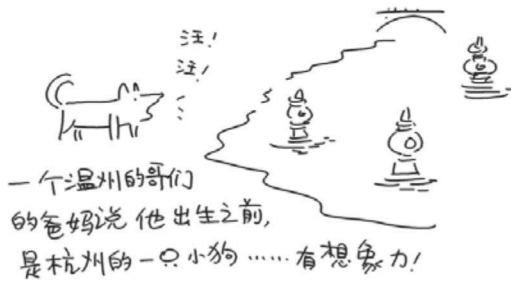 汪！
汪！
一个温州的哥们
的爸妈说他出生之前,
是杭州的一只小狗……有想象力!